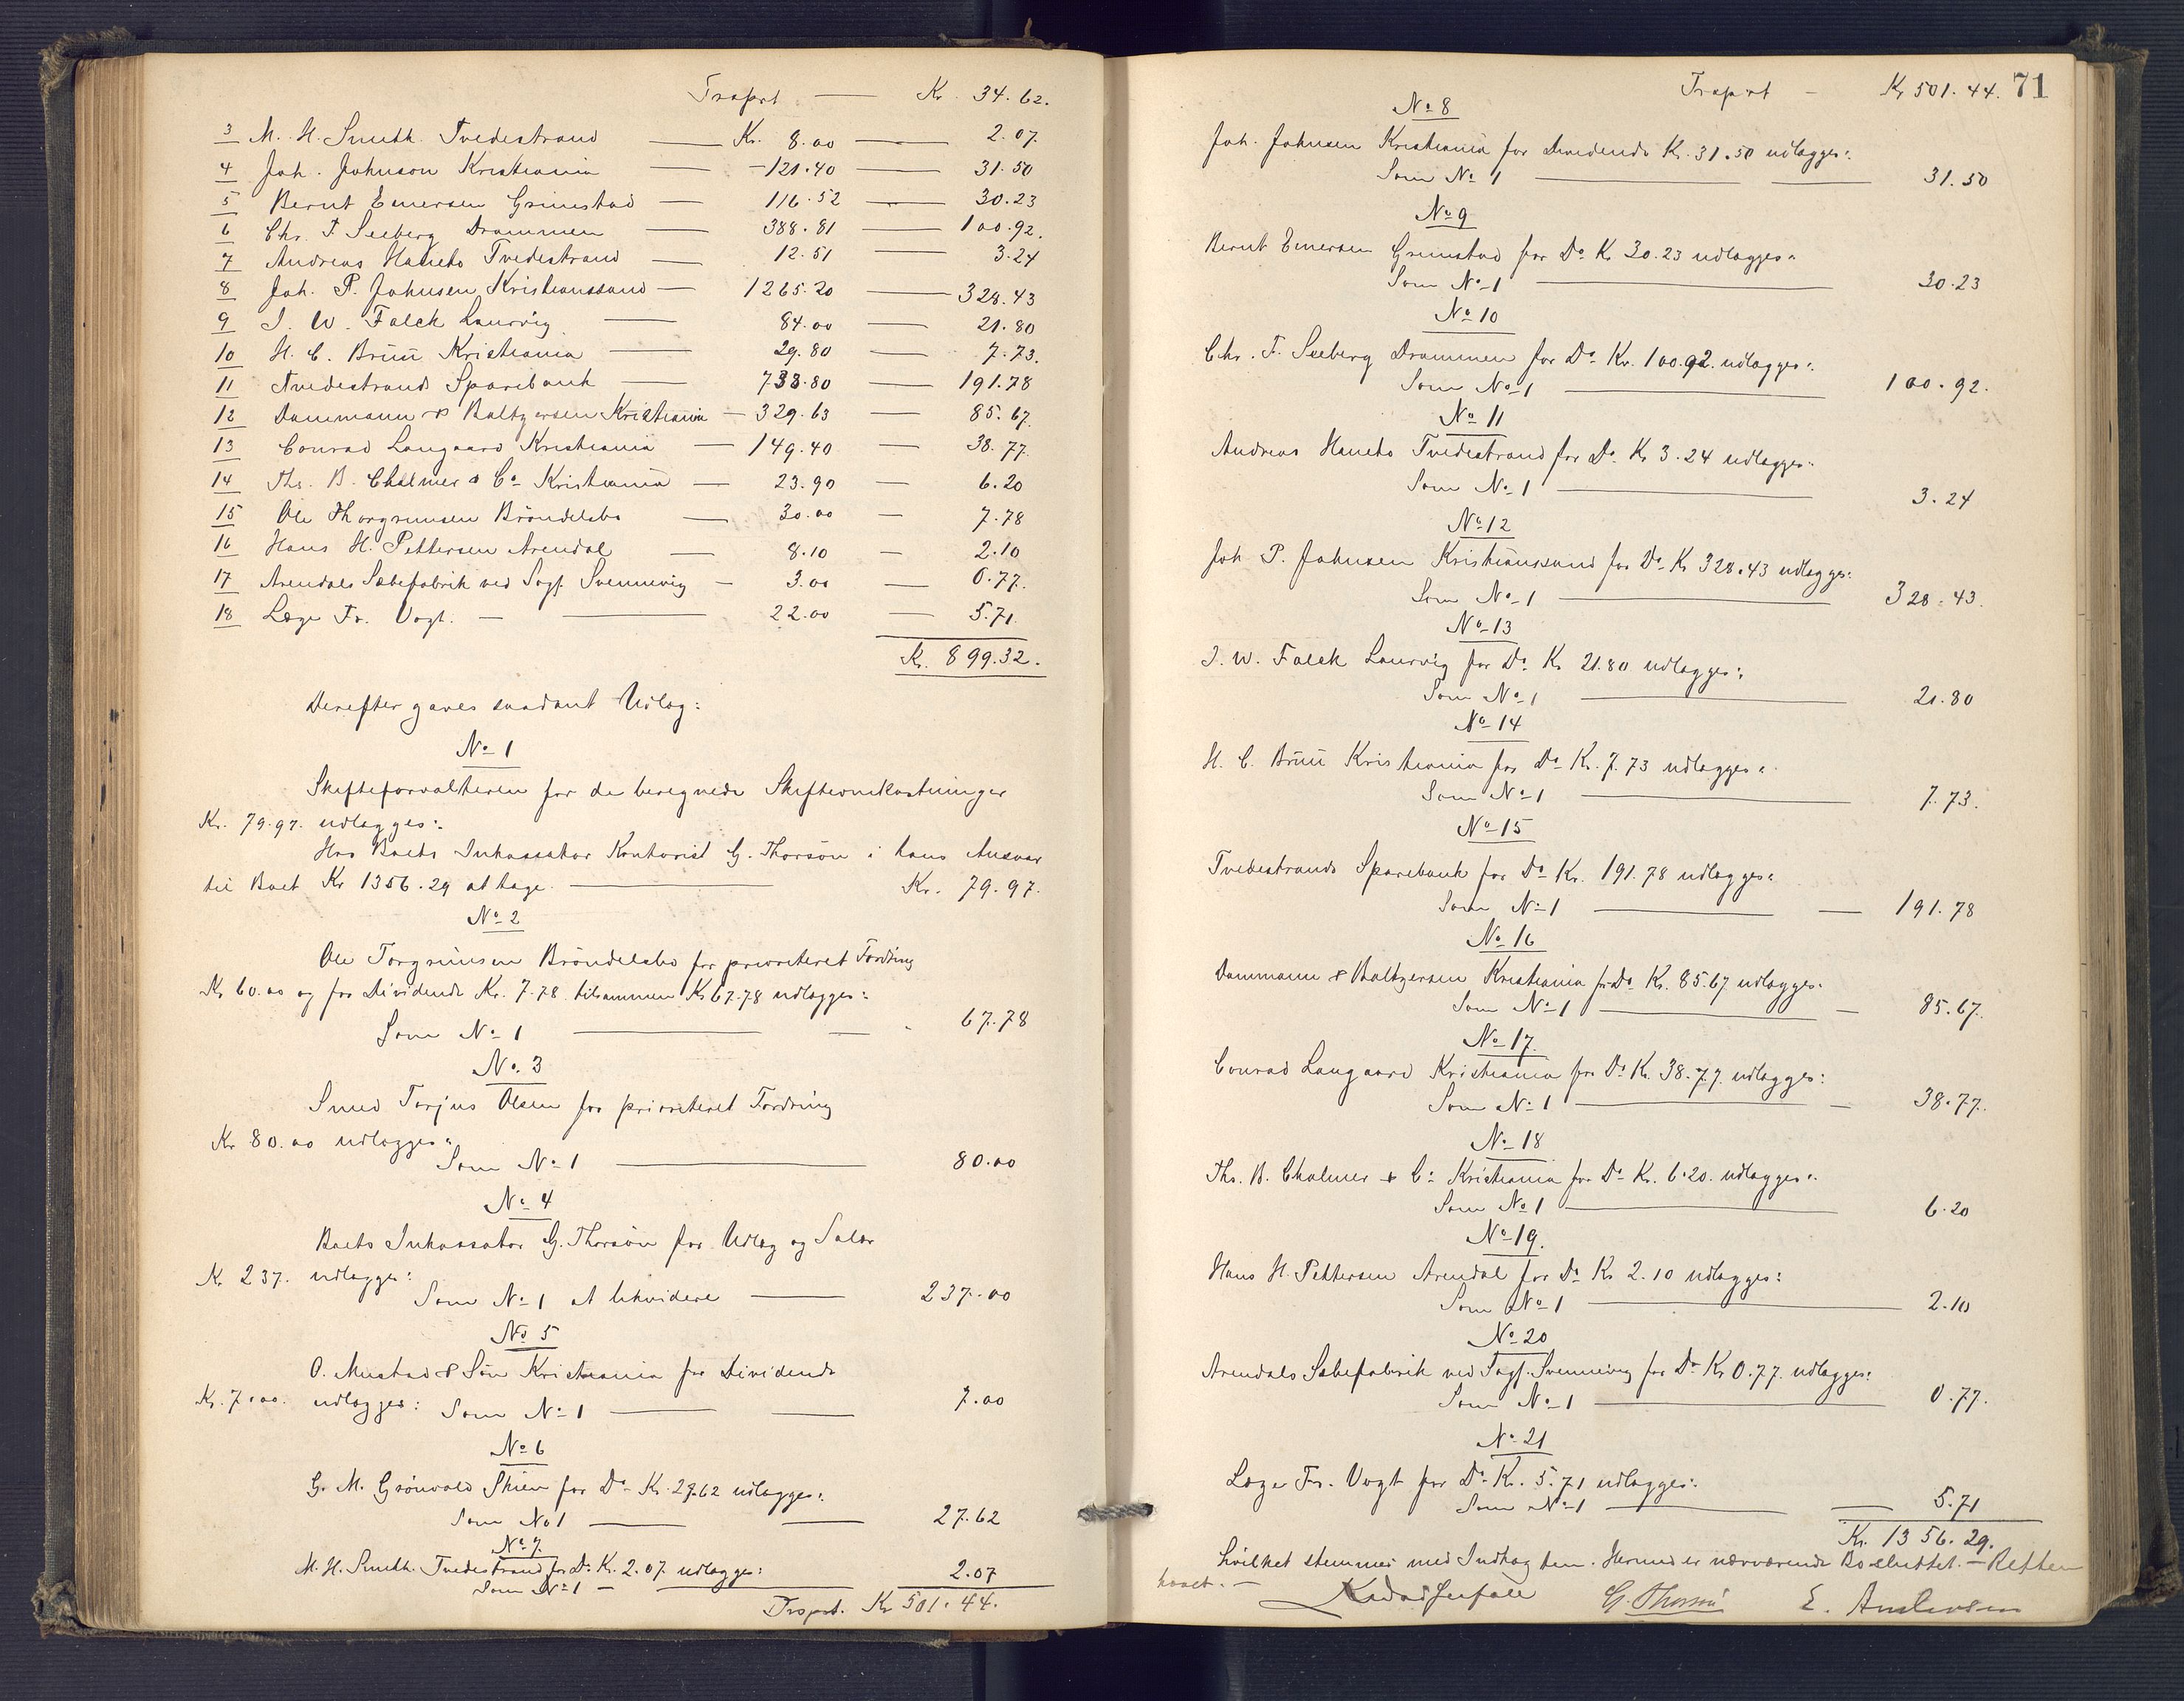 Trsprt — Kr. 34.62.
3 M. H. Smith. Tvedestrand — Kr. 8.00 — 2.07.
4 Joh. Johnson Kristiania — 121.40 — 31.50
5 Bernt Emersen Grimstad — 116.52 — 30.23
6 Chr. F. Seeberg Drammen — 388.81 — 100.92.
7 Andreas Haneto Tvedestrand — 12.51 — 3.24
8 Joh. P. Johnsen Kristianssand — 1265.20 — 328.43
9 J. W. Falck Laurvig — 84.00 — 21.80
10 H. C. Bruu Kristiania — 29.80 — 7.73.
11 Tvedestrands Sparebank — 738.80 — 191.78
12 Dammann & Baltzersen Kristiania — 329.63 — 85.67.
13 Conrad Langaard Kristiania — 149.40 — 38.77.
14 Ths. B. Chalmer & Co Kristiania — 23.90 — 6.20
15 Ole Thorgrimsen Bröndelsbo — 30.00 — 7.78
16 Hans H. Pettersen Arendal — 8.10 — 2.10
17 Arendals Sæbefabrik ved Sagf. Svennevig — 3.00 — 0.77.
18 Læge Fr. Vogt. — 22.00 — 5.71.
Kr. 899.32.
Derefter gaves saadant Udlæg:
No 1
Skifteforvalteren for de beregnede Skifteomkostninger
Kr. 79.97. udlægges:
Hos Boets Inkassator Kontorist G. Thorsön i hans Ansvar
til Boet Kr 1356.29 at tage. — Kr. 79.97.
No 2
Ole Torgrimsen Bröndelsbo for prioriteret Fordring
Kr 60.00 og for Dividende Kr. 7.78 tilsammen Kr 67.78 udlægges:
Som No 1 — 67.78
No. 3
Smed Torjus Olsen for prioriteret Fordring
Kr 80.00 udlægges:
Som No 1 — 80.00
No 4
Boets Inkassator G. Thorsön for Udlæg og Salær
Kr 237. udlægges:
Som No 1 at likvidere — 237.00
No 5
O. Mustad & Sön Kristiania for Dividende
Kr. 7.00. udlægges: Som No 1 — 7.00
No 6
G. M. Grönvold Skien for Do Kr. 27.62 udlægges:
Som No 1 — 27.62
No 7.
M. H. Smith. Tvedestrand for Do Kr. 2.07. udlægges:
Som No 1 — 2.07
Trsprt. Kr 501.44.
Trsprt — Kr 501.44. 71
No 8
Joh. Johnsen Kristiania for Dividende Kr. 31.50 udlægges:
Som No 1 — 31.50
No 9
Bernt Emersen Grimstad for Do Kr 30.23 udlægges:
Som No 1 — 30.23
No 10
Chr. F. Seeberg Drammen for Do Kr. 100.92. udlægges:
Som No 1 — 100.92.
No 11
Andreas Haneto Tvedestrand for Do Kr 3.24 udlægges:
Som No 1 — 3.24
No 12
Joh P. Johnsen Kristianssand for Do Kr 328.43 udlægges:
Som No 1 — 328.43.
No 13
J. W. Falck Laurvig for Do Kr 21.80 udlægges:
Som No 1 — 21.80
No 14
H. C. Bruu Kristiania for Do Kr. 7.73 udlægges:
Som No 1 — 7.73.
No 15
Tvedestrands Sparebank for Do Kr. 191.78 udlægges:
Som No 1 — 191.78
No 16
Dammann & Baltzersen Kristiania for Do Kr. 85.67. udlægges:
Som No 1 — 85.67.
No 17.
Conrad Langaard Kristiania for Do Kr. 38.77. udlægges:
Som No 1 — 38.77.
No 18
Ths. B. Chalmer & Co Kristiania for Do Kr. 6.20. udlægges:
Som No 1 — 6.20
No 19.
Hans H. Pettersen Arendal for Do Kr 2.10 udlægges:
Som No 1 — 2.10
No 20
Arendals Sæbefabrik ved Sagf. Svennevig for Do Kr 0.77. udlægges:
Som No 1 — 0.77.
No 21
Læge Fr. Vogt for Do Kr. 5.71 udlægges:
Som No 1 — 5.71
Kr. 1356.29.
hvilket stemmer med Indtægten. Hermed er nærværende Bo sluttet. — Retten
hævet. —
G. Thorsön E. Andersen